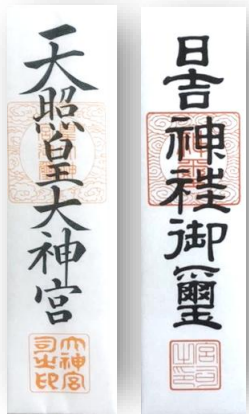 天照皇大神宮
大神宮
司之印
日吉神社御璽